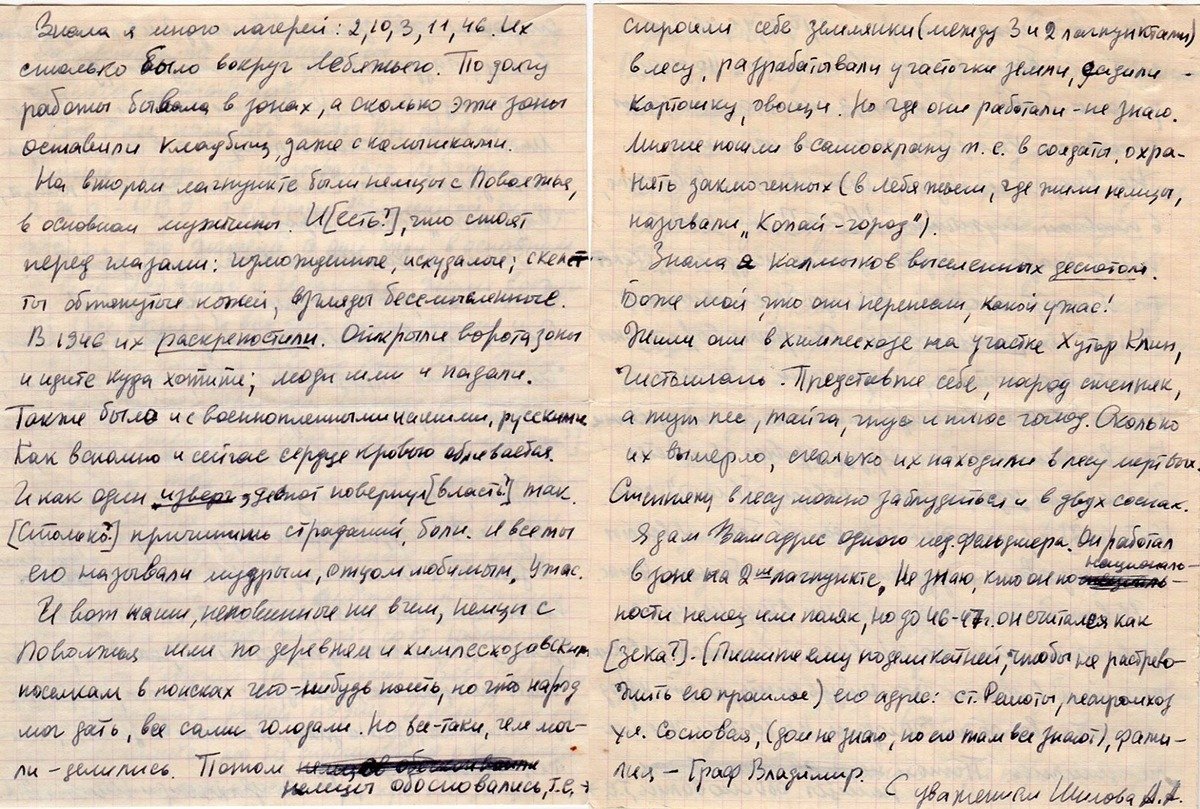 Знала я много лагерей: 2, 10, 3, 11, 46. Их
столько было вокруг Лебяжьего. По долгу
работы бывала в зонах, а сколько эти зоны
оставили кладбищ, даже с колышками.
На втором лагпункте были немцы с Поволжья,
в основном мужчины. И [есть?], что стоят
перед глазами: изможденные, исхудалые; скеле
ты обтянутые кожей, взгляды бесмысленные.
В 1946 их раскрепостили. Открыли ворота зоны
и идите куда хотите; люди шли и падали.
Также было и с военнопленными нашими, русскими
Как вспомню и сейчас сердце кровью обливается.
И как один изверг, деспот повернул [власть?] так.
[Столько?] причинить страданий, боли. И все мы
его называли мудрым, отцом любимым. Ужас.
И вот наши, неповинные ни в чем, немцы с
Поволжья шли по деревням и химлесхозовским
поселкам в поисках чего-нибудь поесть, но что народ
мог дать, все сами голодали. Но все-таки, чем мог-
ли - делились. Потом
немцы обосновались, т.е.
строили себе землянки (между 3 и 2 лагпунктами)
в лесу, разрабатывали участочки земли, садили
картошку, овощи. Но где они работали - не знаю.
Многие пошли в самоохрану т.е. в солдаты, охра-
нять заключенных (в Лебяжьем, где жили немцы,
называли „Копай-город").
Знала я калмыков выселенных деспотом.
Боже мой, что они перенесли, какой ужас!
Жили они в химлесхозе на участке Хутор Клин,
Представте себе, народ степняк,
а тут лес, тайга, гнус и плюс голод. Сколько
их вымерло, сколько их находили в лесу мертвых.
Степняку в лесу можно заблудиться и в двух соснах.
Я дам Вам адрес одного мед. фельдшера. Он работал
в зоне на 2ом лагпункте, Не знаю, кто он по национально-
ности немец или поляк, но до 46-47г. он считался как
[зека?]. (Пишите ему поделикатней, чтобы не растрево-
жить его прошлое) его адрес: ст. Фаленки, леспромхоз
ул. Сосновая, (дом не знаю, но его там все знают), фами-
лия - Граф Владимир.
С уважением Шилова А.